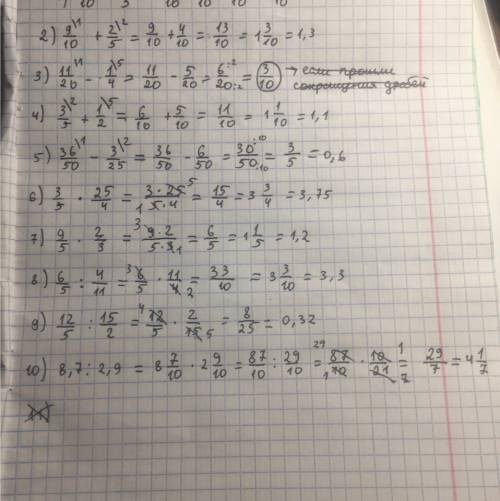 2) 9/10 \1 + 2/5 \2 = 9/10 + 4/10 = 13/10 = 1 3/10 = 1,3
3) 11/20 \1 - 1/4 \5 = 11/20 - 5/20 = 6:2/20:2 = 3/10 → если прошли
сокращения дробей
4) 3/5 \2 + 1/2 \5 = 6/10 + 5/10 = 11/10 = 1 1/10 = 1,1
5) 36/50 \1 - 3/25 \2 = 36/50 - 6/50 = 30:10/50:10 = 3/5 = 0,6
6) 3/5 · 25/4 = 3·25 5/1 5·4 = 15/4 = 3 3/4 = 3,75
7) 9/5 · 2/3 = 3 9·2/5·3 1 = 6/5 = 1 1/5 = 1,2
8) 6/5 : 4/11 = 3 6/5 · 11/4 2 = 33/10 = 3 3/10 = 3,3
9) 12/5 : 15/2 = 4 12/5 · 2/15 5 = 8/25 = 0,32
10) 8,7 : 2,9 = 8 7/10 · 2 9/10 = 87/10 : 29/10 = 29 87/1 10 · 10 1/21 7 = 29/7 = 4 1/7